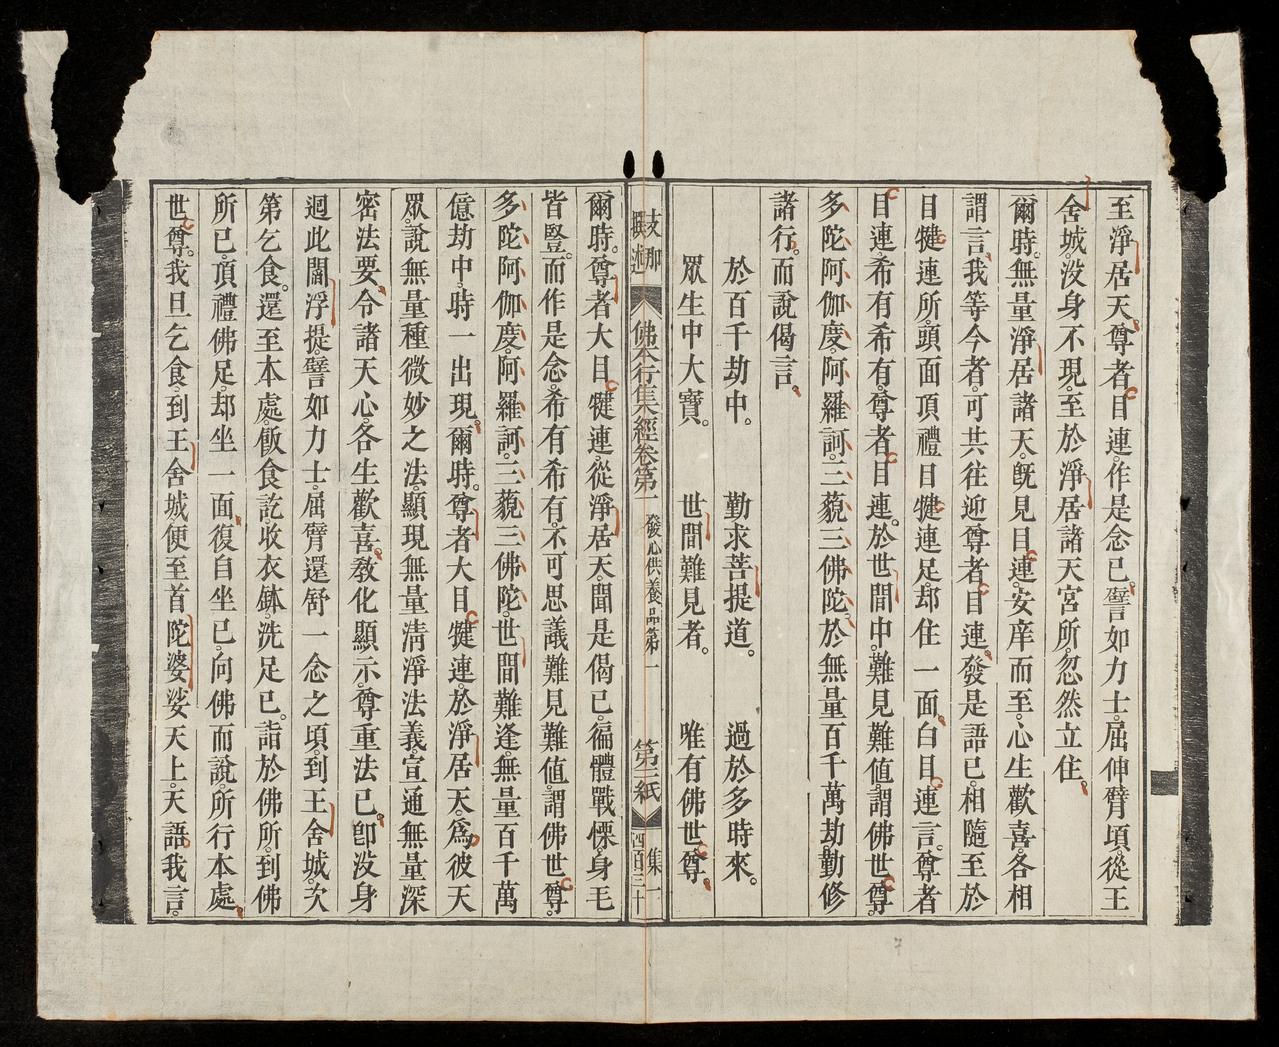 至淨居天。尊者目連。作是念已。譬如力士。屈伸臂頃。從王
舍城。沒身不現。至於淨居諸天宮所。忽然立住。
爾時。無量淨居諸天。旣見目連。安庠而至。心生歡喜。各相
謂言。我等今者。可共往迎尊者目連。發是語已。相隨至於
目犍連所。頭面頂禮目犍連足。却住一面。白目連言。尊者
目連。希有希有。尊者目連。於世間中。難見難値。謂佛世尊
多陀阿伽度。阿羅訶。三藐三佛陀。於無量百千萬劫。勤修
諸行。而說偈言。
於百千劫中。 勤求菩提道。 過於多時來。
眾生中大寶。 世間難見者。 唯有佛世尊。
支那
撰述
佛本行集經卷第一 發心供養品第一 第三紙 集一
爾時。尊者大目犍連。從淨居天。聞是偈已。徧體戰慄。身毛
皆豎。而作是念。希有希有。不可思議。難見難値。謂佛世尊。
多陀阿伽度。阿羅訶。三藐三佛陀。世間難逢。無量百千萬
億劫中。時一出現。爾時。尊者大目犍連。於淨居天。爲彼天
眾。說無量種微妙之法。顯現無量淸淨法義。宣通無量深
密法要。令諸天心。各生歡喜。敎化顯示。尊重法已。卽沒身
迴此閻浮提。譬如力士。屈臂還舒。一念之頃。到王舍城。次
第乞食。還至本處。飯食訖。收衣鉢。洗足已。詣於佛所。到佛
所已。頂禮佛足。却坐一面。復自坐已。向佛而說。所行本處。
世尊。我旦乞食。到王舍城。便至首陀婆娑天上。天語我言。